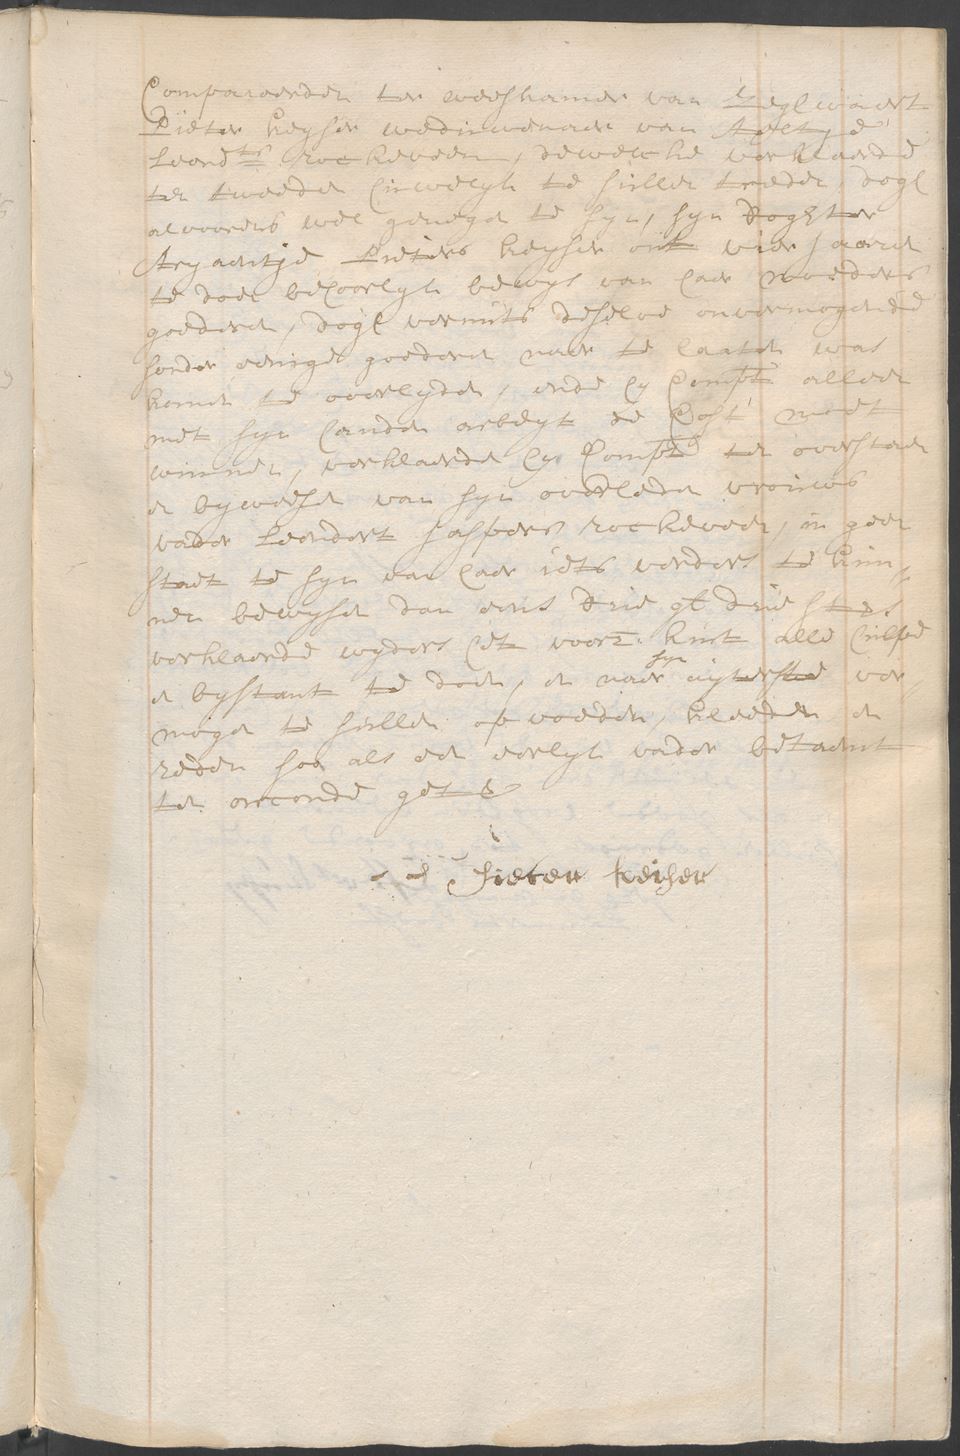 Compareerden ter weeskamer van Zegwaert
Pieter Keyser weduwenaer van Aeltje
Leend:ts rockeveen, dewelcke verklaerde
ten tweeden huwelyk te sullen treden, dogh
alvoorens wel genegen te syn, syn doghter
Aryaentje Pieters Keyser out vier jaaren
te doen behoorlyk bewys van haer moeders
goederen, dogh vermits deselve onvermogende
sonder eenige goederen naer te laaten was
komen te overlyden, ende hy Compt. alleen
met syn handen arbeyt de Cost moet
winnen, verklaerde hy Compt. ten overstaen
en bywesen van syn overleden vrouws
vader Leendert Jaspers rockeveen, in geen
staet te syn van haer iets verders te kun„
nen bewysen dan eens drie gl drie st.rs
verklaerde wyders het voorz. kint alle hulpe
en bystant te doen, en naer syn uyterste ver
mogen te sullen opvoeden, kleeden en
reden soo als een eerlyk vader betaemt
ten oirconde get.
Pieter Keijser